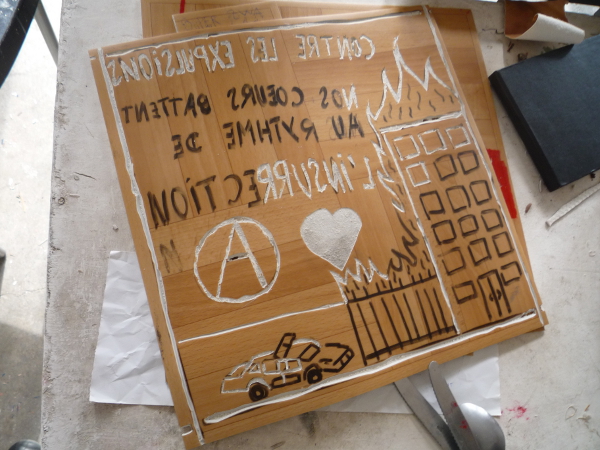 CONTRE LES EXPULSIONS
NOS COEURS BATTENT
AU RYTHME DE
L'INSURRECTION
A